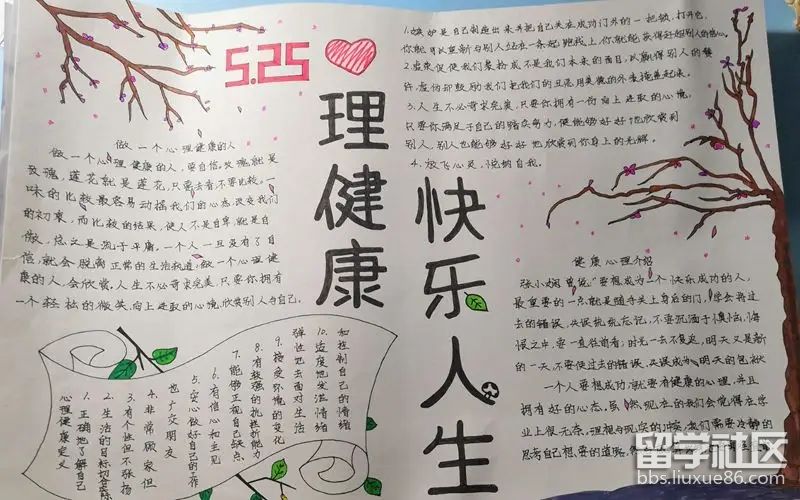 5.25
理健康
快乐人生
做一个心理健康的人
做一个心理健康的人，要自信。玫瑰就是
玫瑰，莲花就是莲花，只要去看不要比较。一
味的比较最容易动摇我们的心态改变我们
的初衷，而比较的结果，使人不是自卑，就是自
傲，总之是流于平庸。一个人一旦没有了自
信，就会脱离正常的生活轨道，做一个心理健
康的人，会欣赏，人生不必苛求完美，只要你拥有
一个轻松的微笑，向上进取的心境，欣赏别人与自己。
1.嫉妒是自己制造出来并把自己关在成功门外的一把锁，打开它，
你就可以重新与别人站在一条起跑线上，你就能获得赶超别人的信心。
2.虚荣促使我们装扮成不是我们本来的面目以赢得别人的赞
许，虚伪却鼓励我们把我们的丑恶用美德的外表掩盖起来。
3.人生不必苛求完美，只要你拥有一份向上进取的心境，
只要你满足于自己的踏实努力，便能够好好地欣赏到
别人，别人也能够好好地欣赏到你身上的光辉。
4.放飞心灵，悦纳自我。
健康心理介绍
张小娴曾说："要想成为一个快乐成功的人，
最重要的一点就是随手关上身后的门，学会将过
去的错误、失误统统忘记，不要沉湎于懊恼、悔
恨之中，要一直往前看；时光一去不复返，明天又是新
的一天，不要使过去的错误、失误成为明天的包袱
一个人要想成功，就要有健康的心理，并且
拥有好的心态，虽然，现在的我们会觉得在学
业上很无奈，理想与现实的冲突，我们需要冷静的
思考自己想要的道路。
心理健康定义
1.正确地了解自己
2.生活的目标切合实际
3.有个性但不张扬
4.非常顾家但
也广交朋友
5.安心做好自己的工作
6.有信心和主见
7.能够正视自己缺点
8.有较强的抗挫折能力
9.接受环境的变化
弹性地去面对生活
10.适度地发泄情绪
和控制自己的情绪
留学社区
bbs.liuxue86.com